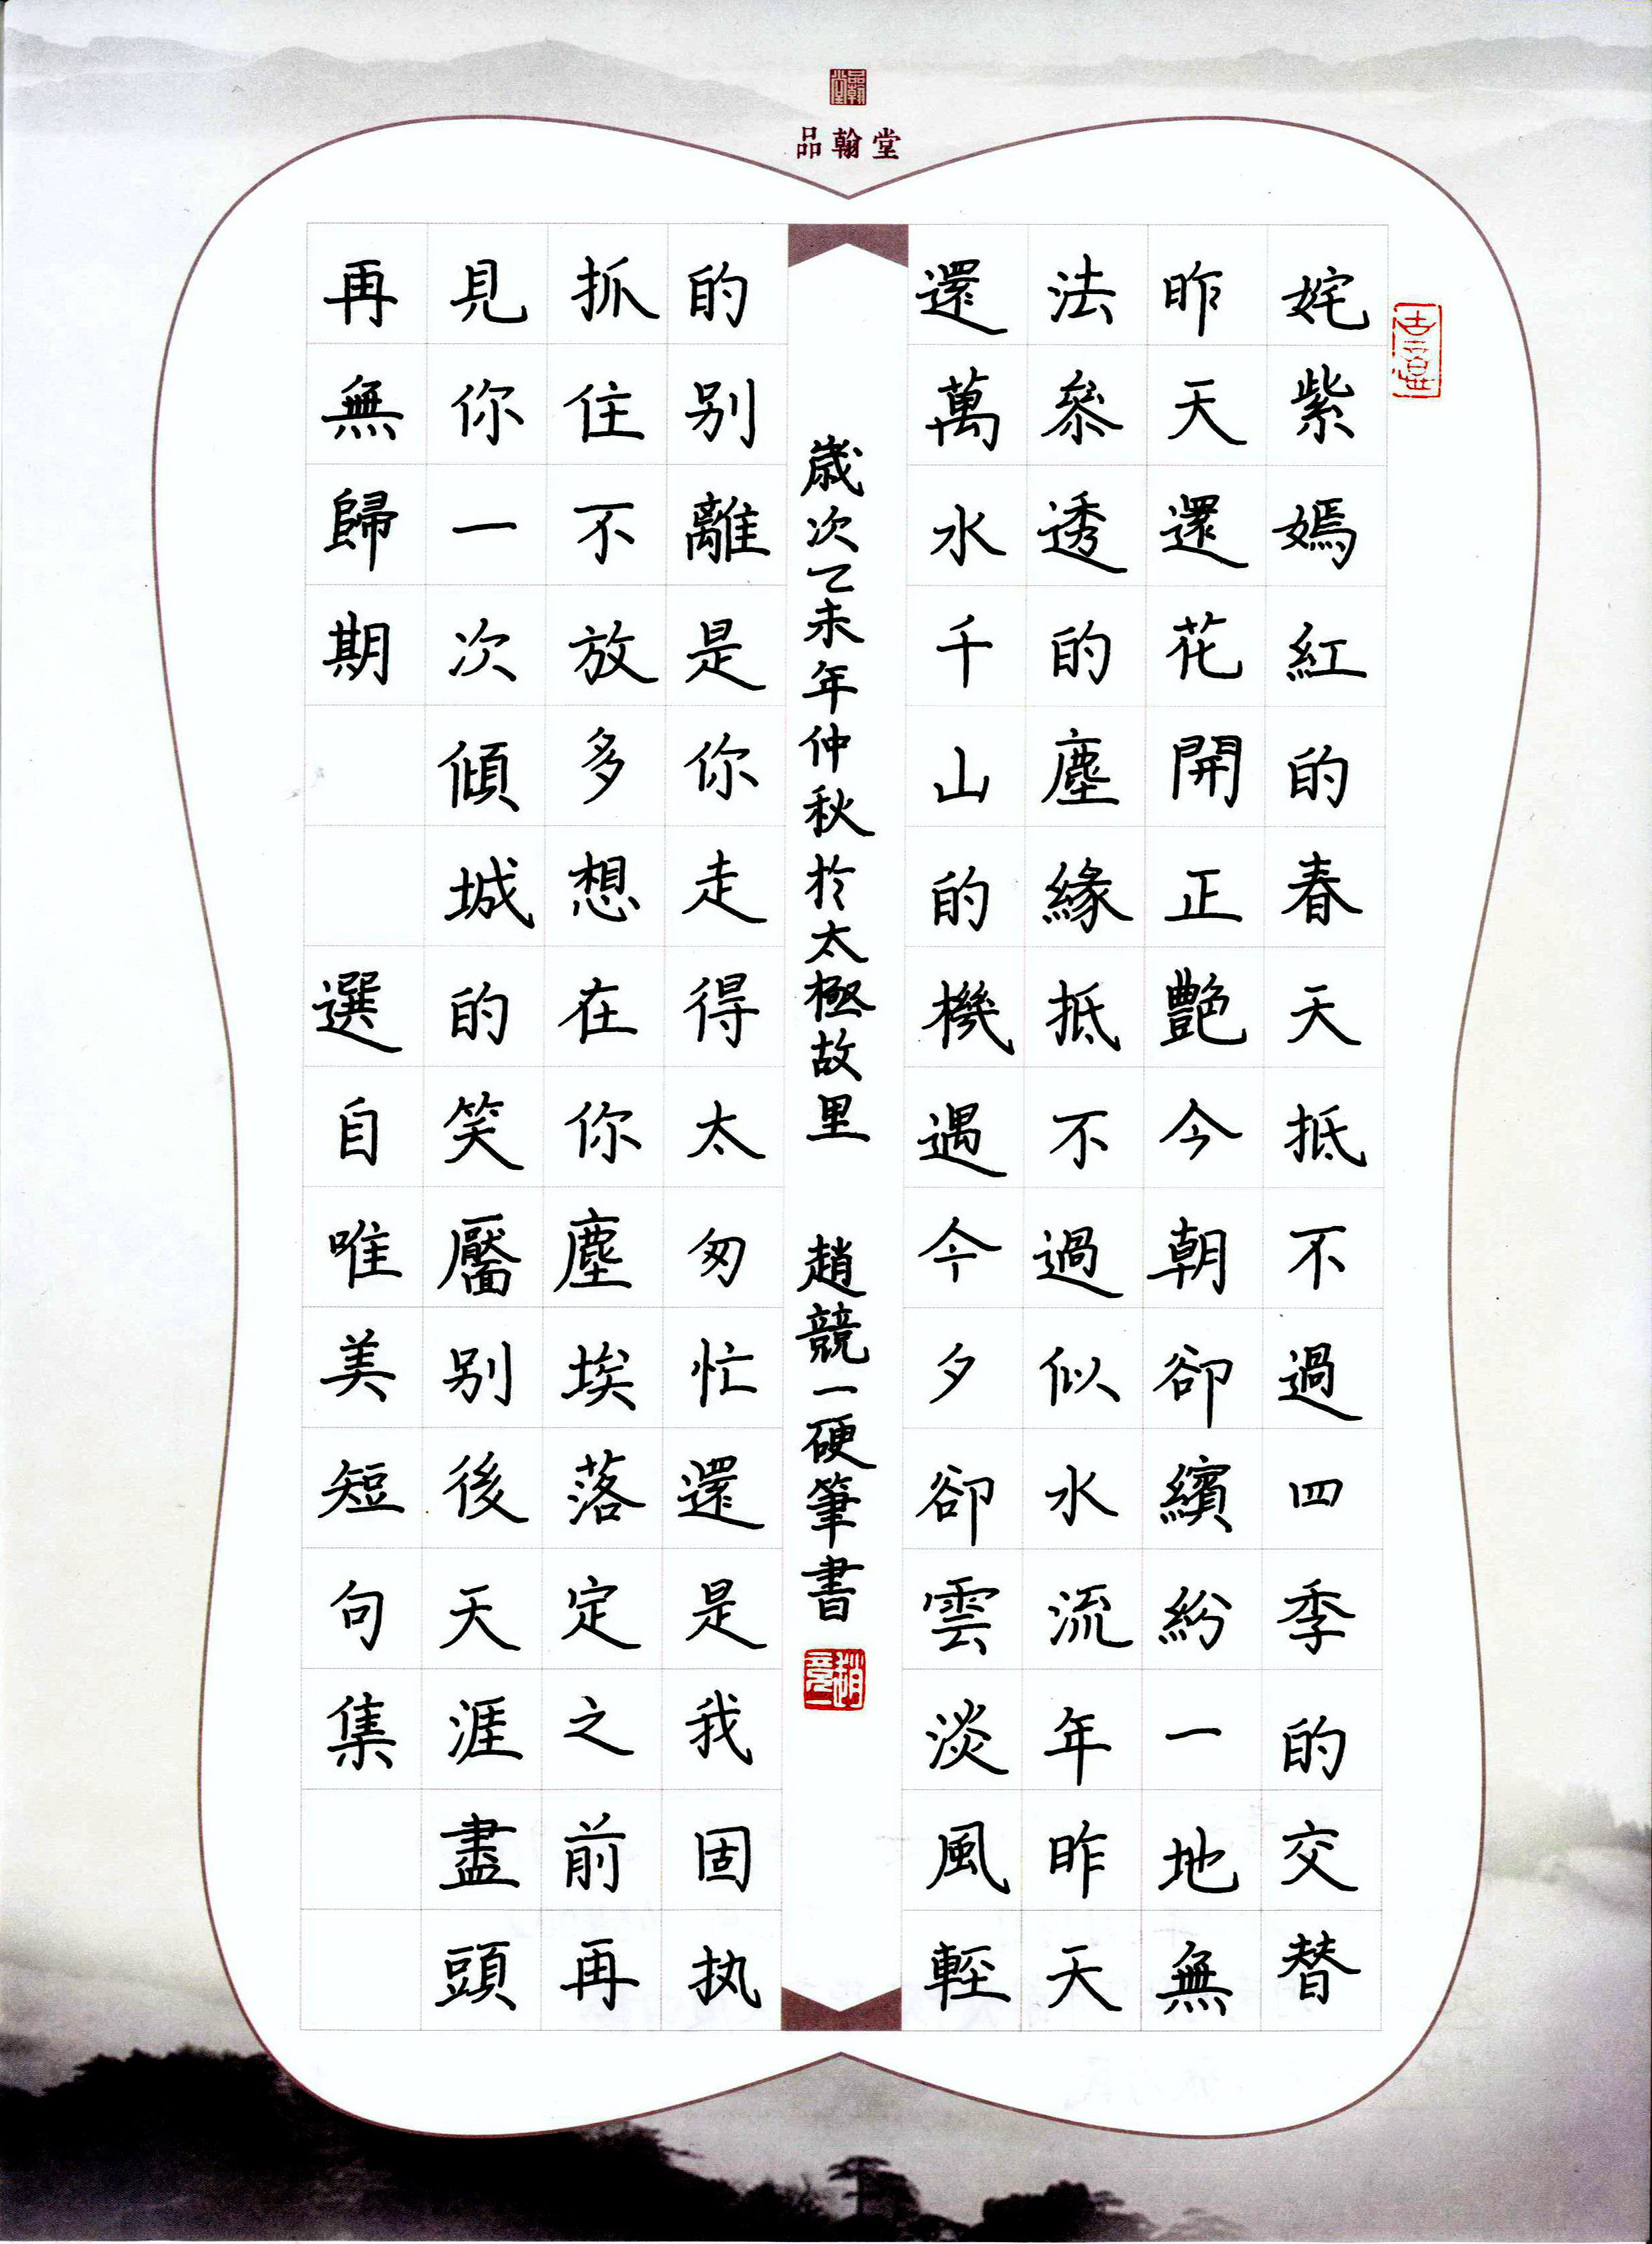 品翰堂
姹紫嫣紅的春天抵不過四季的交替
昨天還花開正艷今朝卻繽紛一地無
法參透的塵緣抵不過似水流年昨天
還萬水千山的機遇今夕卻雲淡風輕
歲次乙未年仲秋於太極故里 趙競一硬筆書
的别離是你走得太匆忙還是我固执
抓住不放多想在你塵埃落定之前再
見你一次傾城的笑靨别後天涯盡頭
再無歸期 選自唯美短句集
品翰堂
趙競一